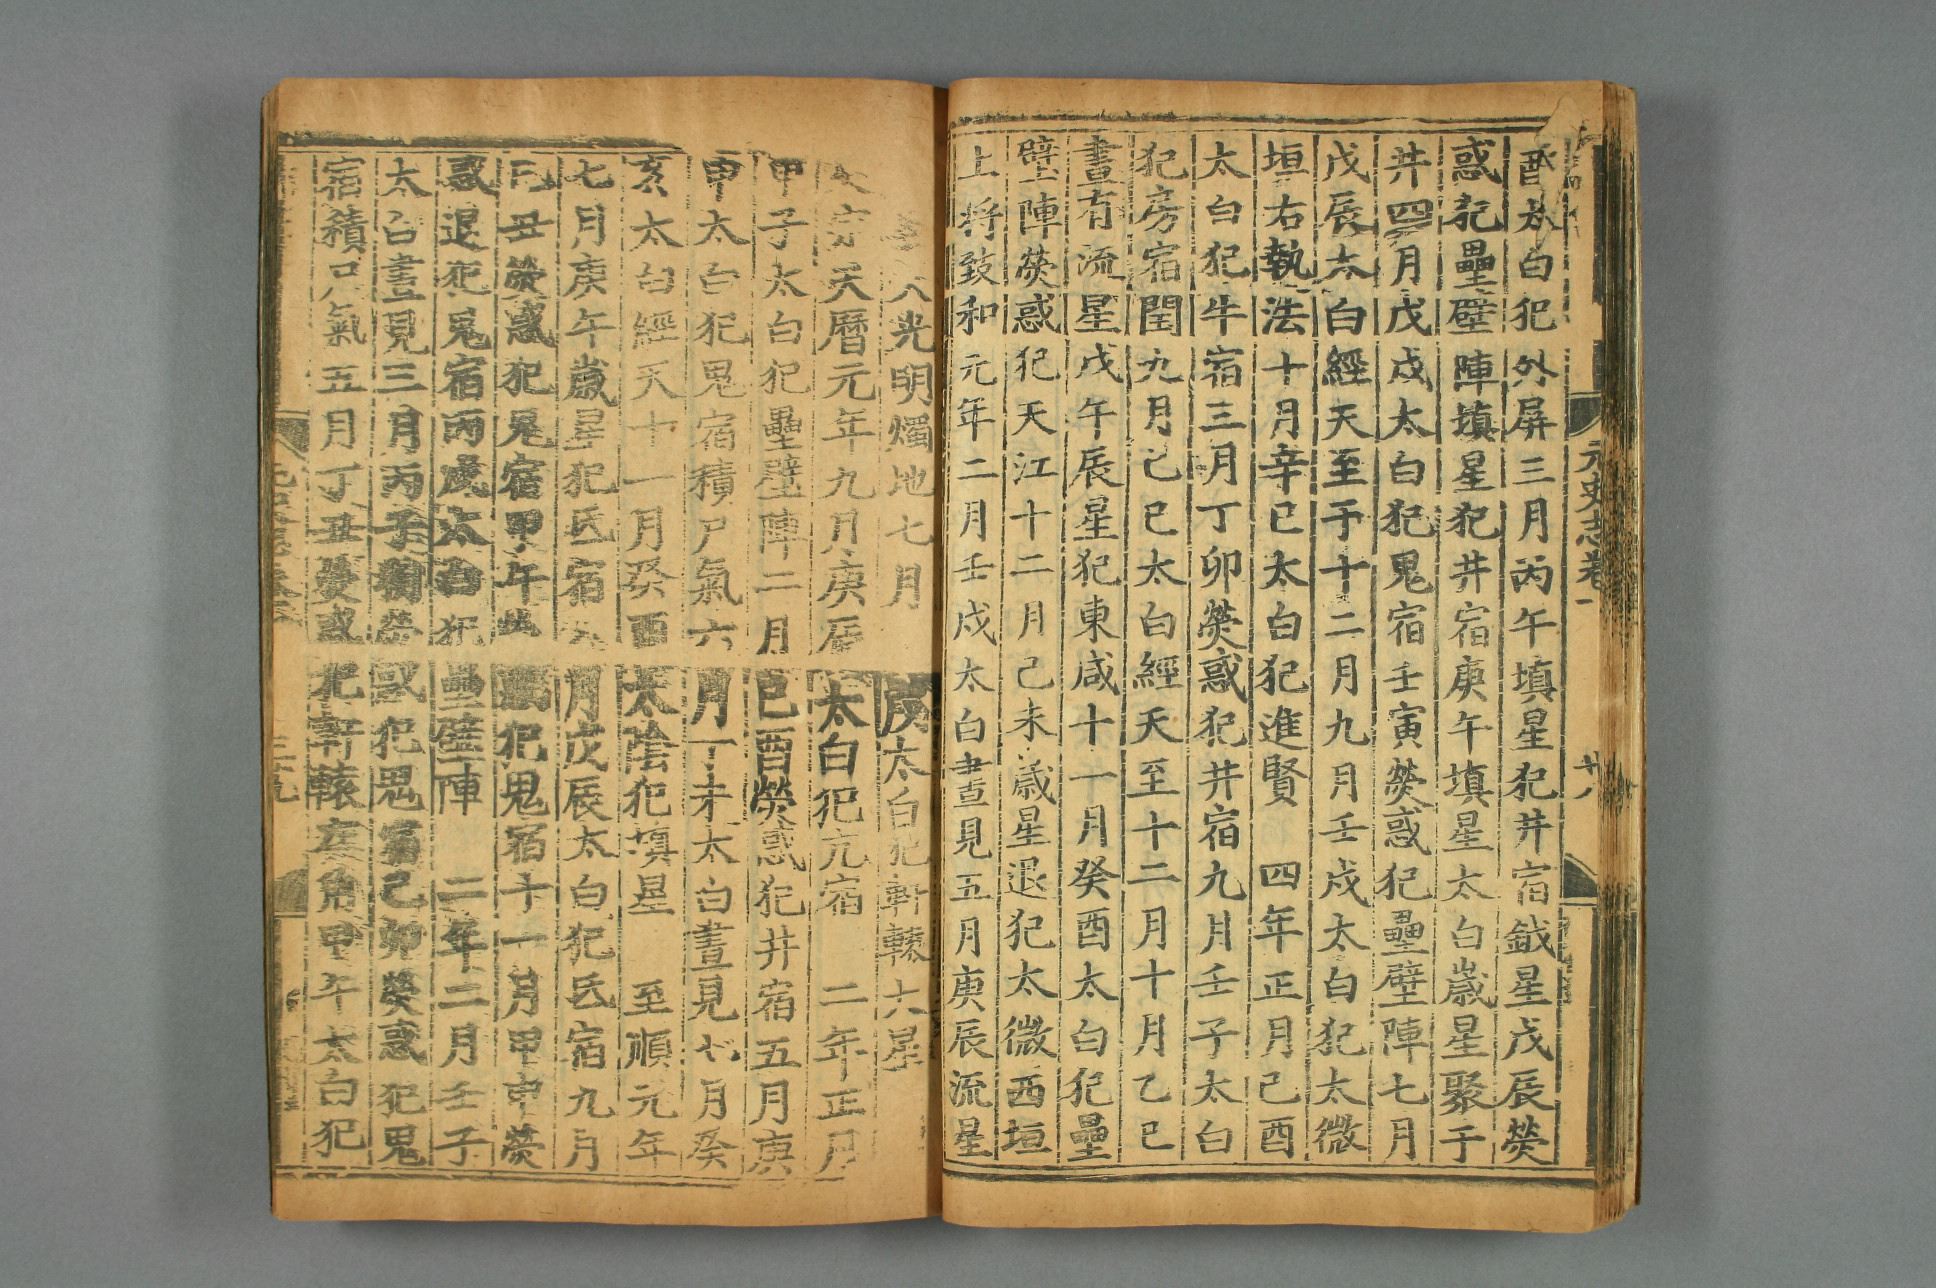 酉太白犯外屏三月丙午填星犯井宿鉞星戊辰熒
惑犯壘壁陣填星犯井宿庚午填星太白歲星聚于
井四月戊戌太白犯鬼宿壬寅熒惑犯壘壁陣七月
戊辰太白經天至于十二月九月壬戌太白犯太微
垣右執法十月辛巳太白犯進賢 四年正月己酉
太白犯牛宿三月丁卯熒惑犯井宿九月壬子太白
犯房宿閏九月己巳太白經天至十二月十月乙巳
晝有流星戊午辰星犯東咸十一月癸酉太白犯壘
壁陣熒惑犯天江十二月己未歲星退犯太微西垣
上將致和元年二月壬戌太白晝見五月庚辰流星
元史志卷一 廿八
光明燭地七月庚太白犯軒轅大星
宗天曆元年九月庚辰太白犯亢宿 二年正月
甲子太白犯壘壁陣二月己酉熒惑犯井宿五月庚
申太白犯鬼宿積尸氣六月丁未太白晝見七月癸
亥太白經天十一月癸酉太陰犯填星 至順元年
七月庚午歲星犯氐宿 月戊辰太白犯氐宿九月
己丑熒惑犯鬼宿甲午熒惑犯鬼宿十一月甲申熒
惑退犯鬼宿丙戌太白犯壘壁陣 二年二月壬子
太白晝見三月丙子熒惑犯鬼宿己卯熒惑犯鬼
宿積尸氣五月丁丑熒惑犯軒轅左角甲午太白犯